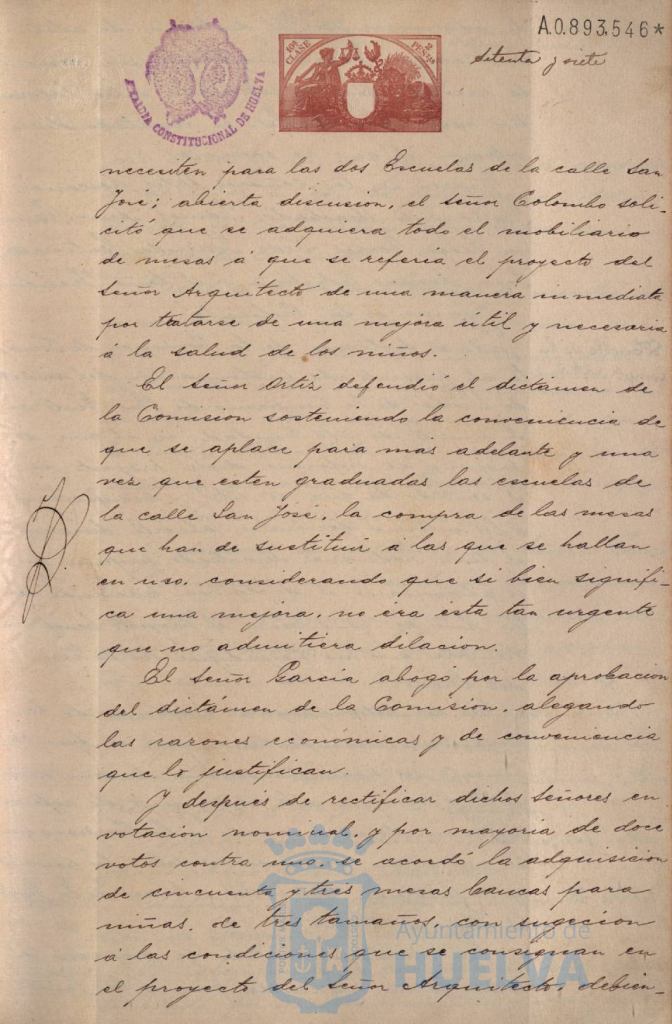 A.0.893.546*
10ª CLASE
2 PESETAS
ALCALDIA CONSTITUCIONAL DE HUELVA
Setenta y siete
necesiten para las dos Escuelas de la calle San
José; abierta discusion, el señor Colombo soli-
citó que se adquiera todo el mobiliario
de mesas á que se referia el proyecto del
señor Arquitecto de una manera inmediata
por tratarse de una mejora útil y necesaria
á la salud de los niños.
El señor Ortiz defendió el dictámen de
la Comision sosteniendo la conveniencia de
que se aplace para más adelante y una
vez que esten graduadas las escuelas de
la calle San José, la compra de las mesas
que han de sustituir á las que se hallan
en uso, considerando que si bien signifi-
ca una mejora, no era esta tan urgente
que no admitiera dilacion.
El señor Garcia abogó por la aprobacion
del dictámen de la Comision, alegando
las razones económicas y de conveniencia
que lo justifican.
Y despues de rectificar dichos señores en
votacion nominal, y por mayoria de doce
votos contra uno, se acordó la adquisicion
de cincuenta y tres mesas bancas para
niñas, de tres tamaños, con sugecion
á las condiciones que se consignan en
el proyecto del señor Arquitecto, debien-
Ayuntamiento de
HUELVA